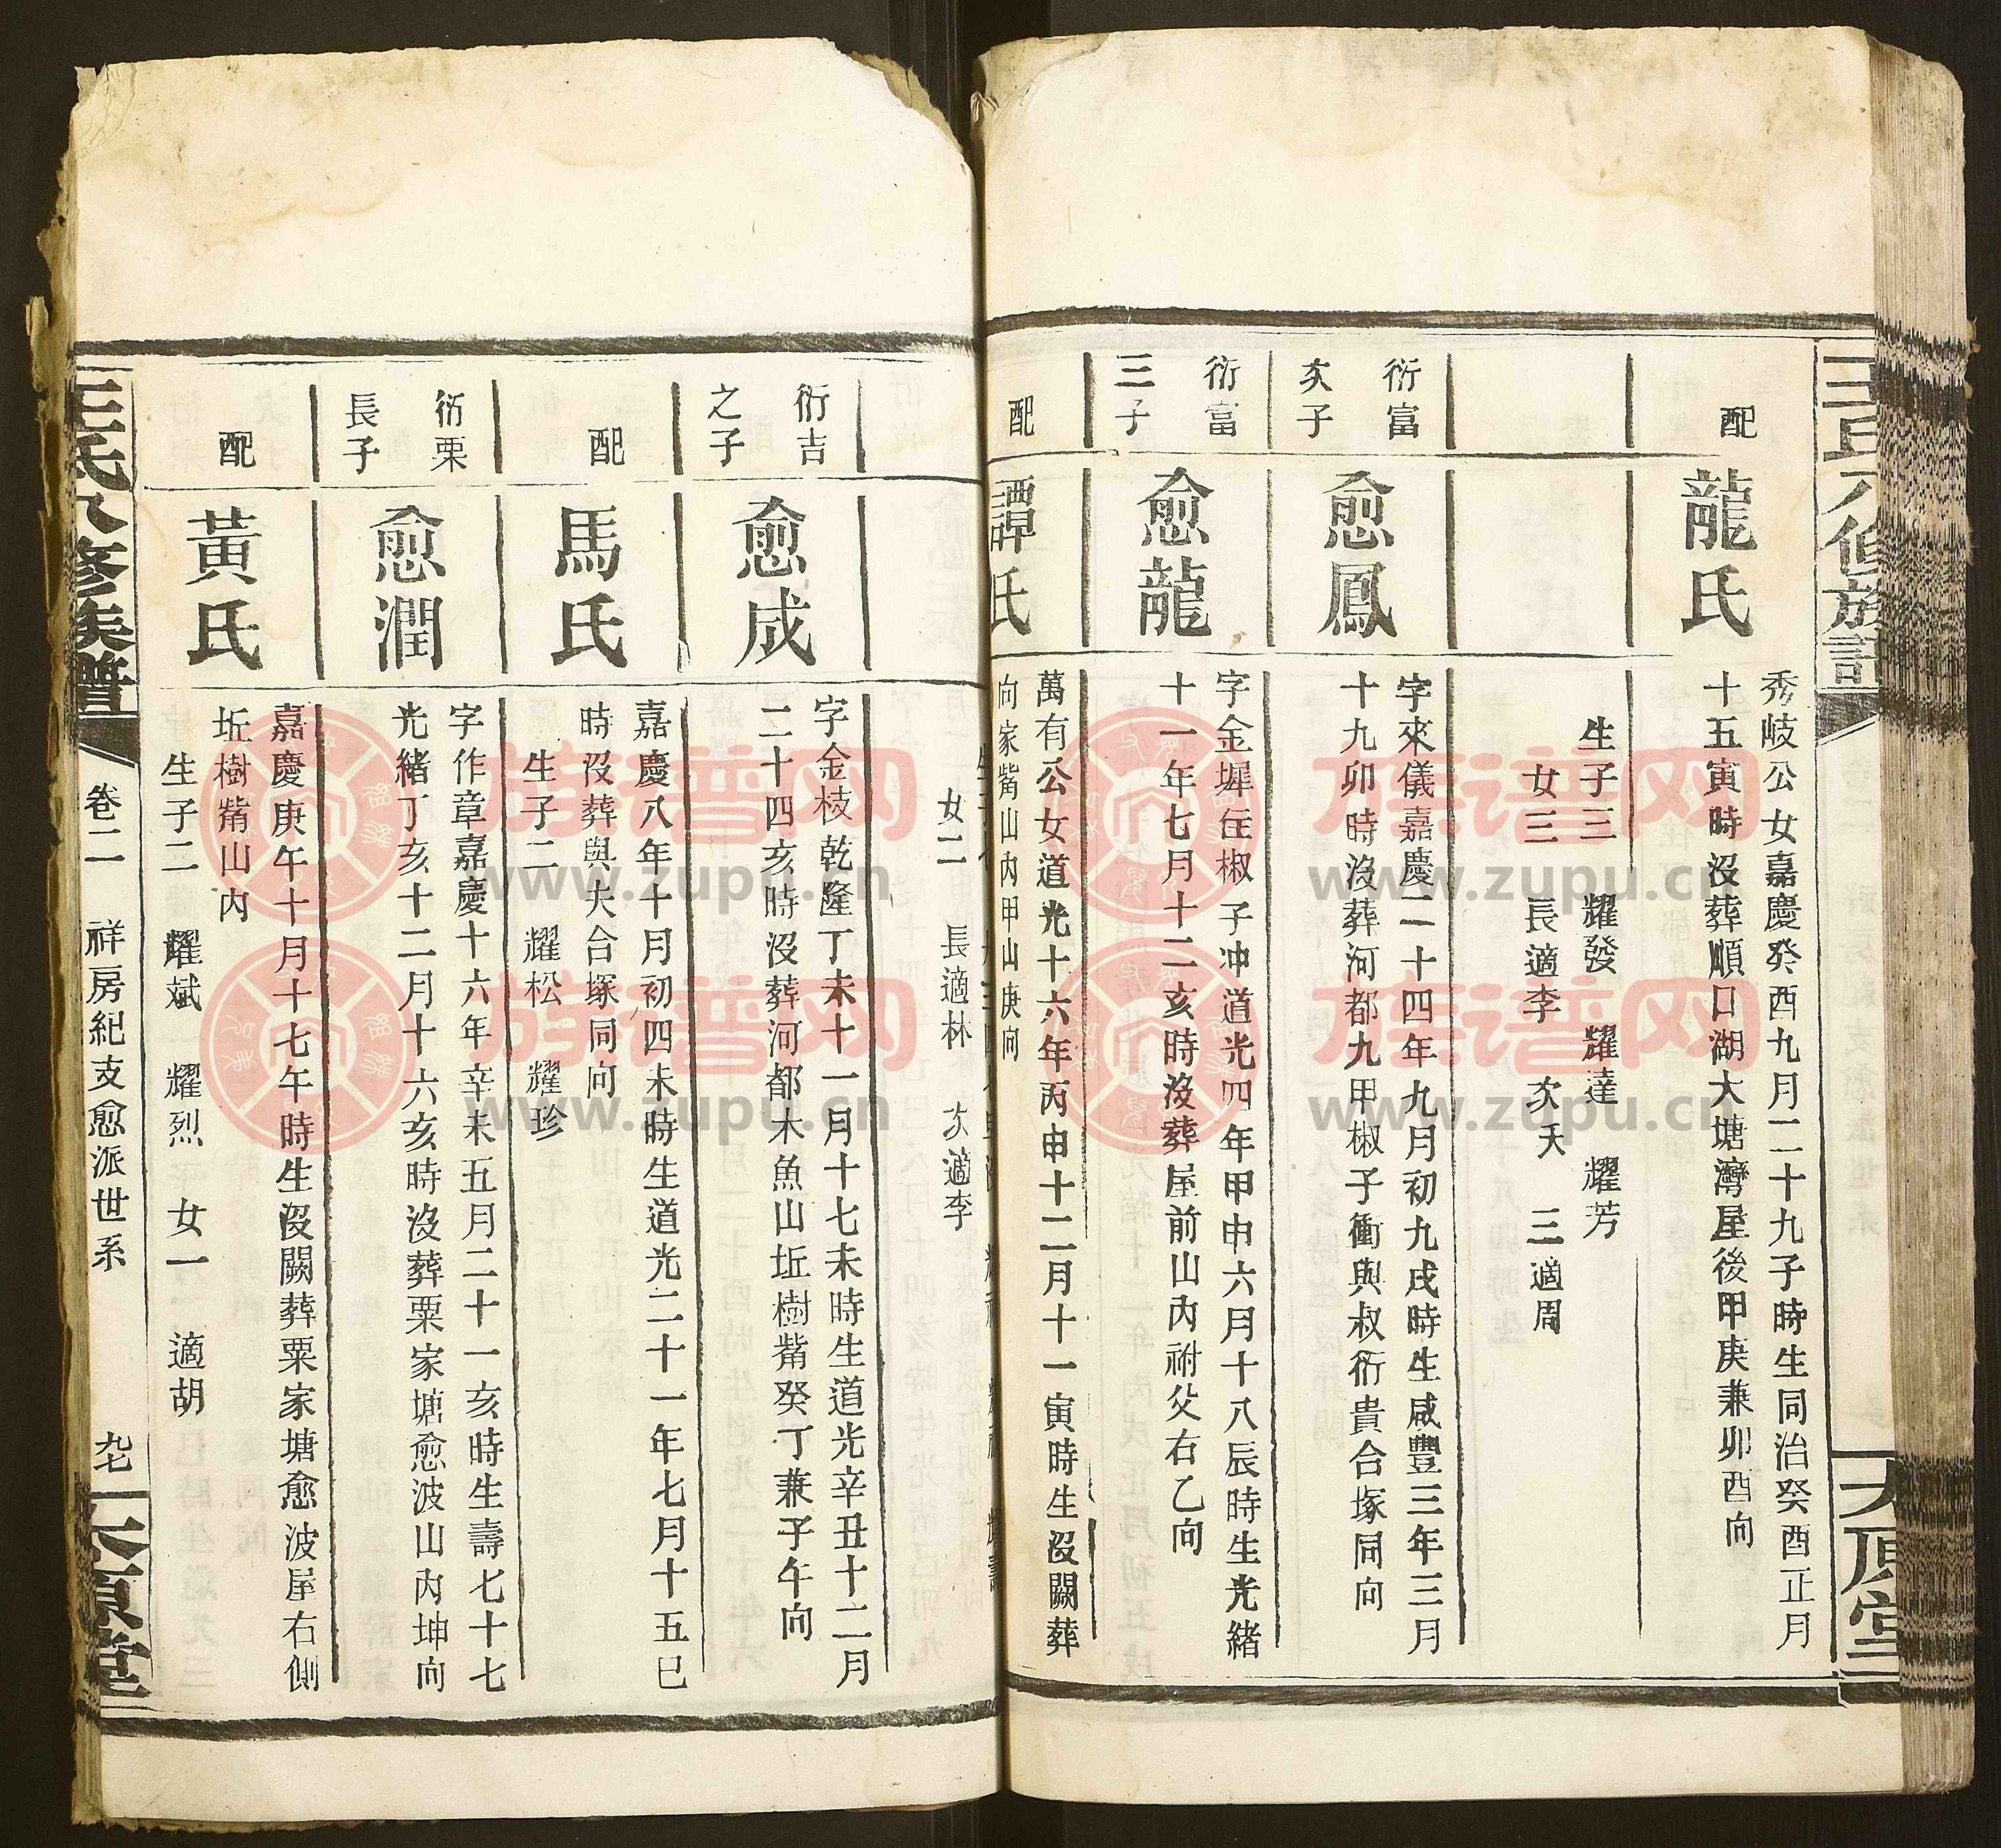 王氏八修族譜
太原堂
配
龍氏
秀岐公女嘉慶癸酉九月二十九子時生同治癸酉正月
十五寅時沒葬順口湖大塘灣屋後甲庚兼卯酉向
生子三 耀發 耀達 耀芳
女三 長適李 次夭 三適周
衍富
次子
愈鳳
字來儀嘉慶二十四年九月初九戌時生咸豐三年三月
十九卯時沒葬河都九甲椒子衝與叔衍貴合塚同向
衍富
三子
愈龍
字金墀住椒子冲道光四年甲申六月十八辰時生光緒
十一年七月十二亥時沒葬屋前山內祔父右乙向
配
譚氏
萬有公女道光十六年丙申十二月十一寅時生沒闕葬
向家觜山內甲山庚向
女二 長適林 次適李
衍吉
之子
愈成
字金枝乾隆丁未十一月十七未時生道光辛丑十二月
二十四亥時沒葬河都木魚山坵樹觜癸丁兼子午向
配
馬氏
嘉慶八年十月初四未時生道光二十一年七月十五巳
時沒葬與夫合塚同向
生子二 耀松 耀珍
衍栗
長子
愈潤
字作章嘉慶十六年辛未五月二十一亥時生壽七十七
光緒丁亥十二月十六亥時沒葬粟家塘愈波山內坤向
配
黃氏
嘉慶庚午十月十七午時生沒闕葬粟家塘愈波屋右側
坵樹觜山內
生子二 耀斌 耀烈 女一 適胡
王氏八修族譜
卷二 祥房紀支愈派世系
九七
太原堂
族谱网
www.zupu.cn
族谱网
www.zupu.cn
族谱网
www.zupu.cn
族谱网
www.zupu.cn